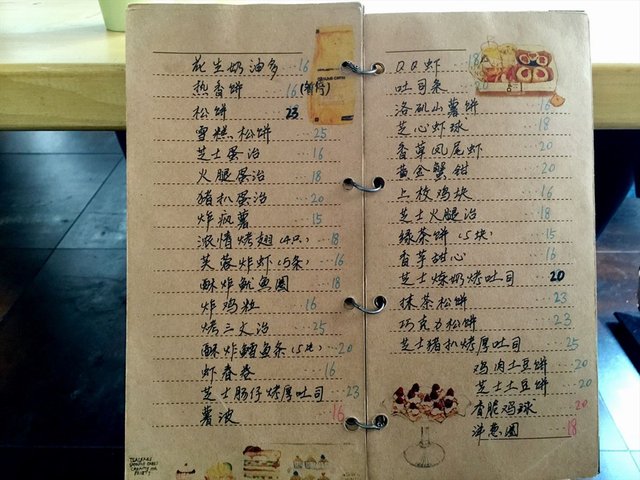 花生奶油多 16
热香饼 16(暂停)
松饼 23
雪糕松饼 25
芝士蛋治 16
火腿蛋治 18
猪扒蛋治 20
炸疯薯 15
浓情烤翅(4只) 18
芙蓉炸虾(5条) 16
酥炸鱿鱼圈 18
炸鸡粒 16
烤三文治 25
酥炸鳕鱼条(5块) 20
虾春卷 16
芝士肠仔烤厚吐司 23
薯波 16
QQ虾 18
吐司条 20
洛矶山薯饼 16
芝心虾球 18
香草凤尾虾 20
黄金蟹钳 20
上枚鸡块 16
芝士火腿治 18
绿茶饼(5块) 15
香芋甜心 16
芝士炼奶烤吐司 20
抹茶松饼 23
巧克力松饼 23
芝士猪扒烤厚吐司 25
鸡肉土豆饼 20
芝士土豆饼 20
香脆鸡球 20
洋葱圈 18